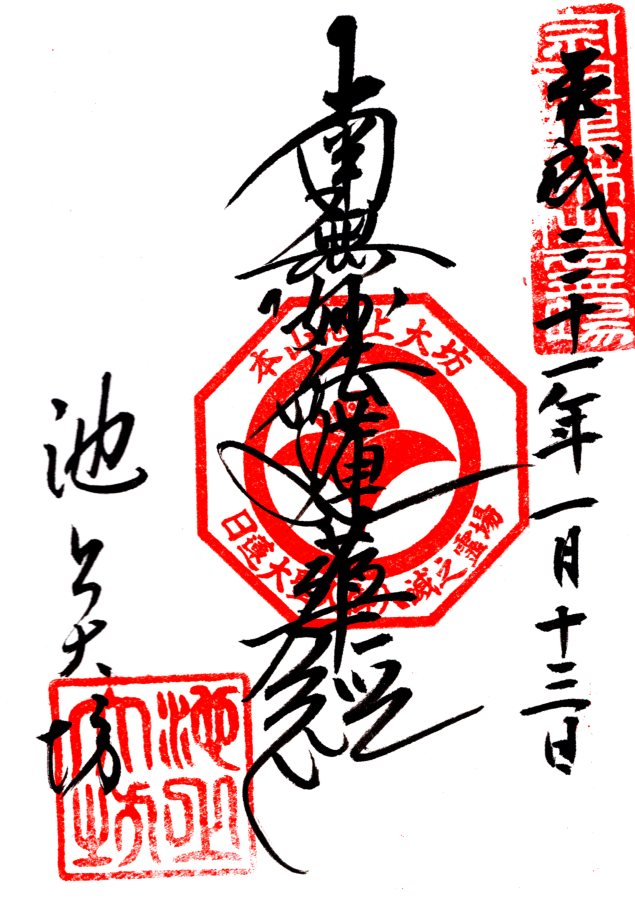 平成二十一年一月十三日
南無妙法蓮華経
本山池上大坊
日蓮大聖人入滅之霊場
池上大坊
池上大坊